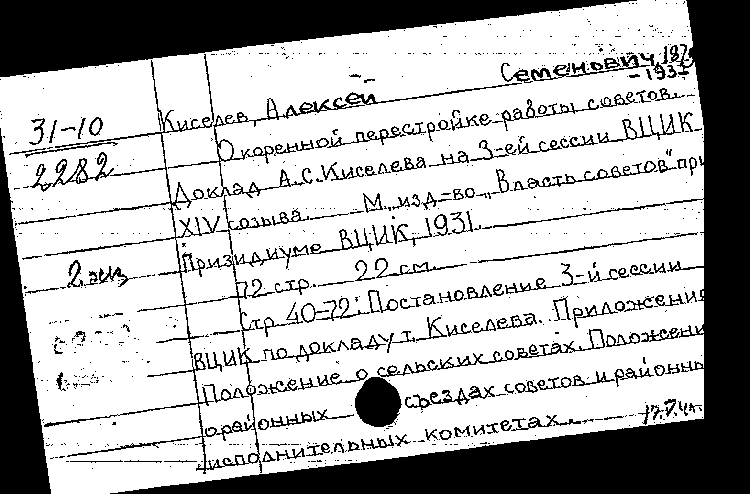 Киселев, Алексей Семенович, 1879
-1937
31-10
2282
О коренной перестройке работы советов.
Доклад А.С. Киселева на 3-ей сессии ВЦИК
XIV созыва. М., изд-во „Власть советов" при
Призидиуме ВЦИК, 1931.
2 экз
72 стр. 22 см.
Стр. 40-72: Постановление 3-й сессии
ВЦИК по докладу т. Киселева. Приложение
Положение о сельских советах. Положени
о районных съездах советов и районны
исполнительных комитетах.